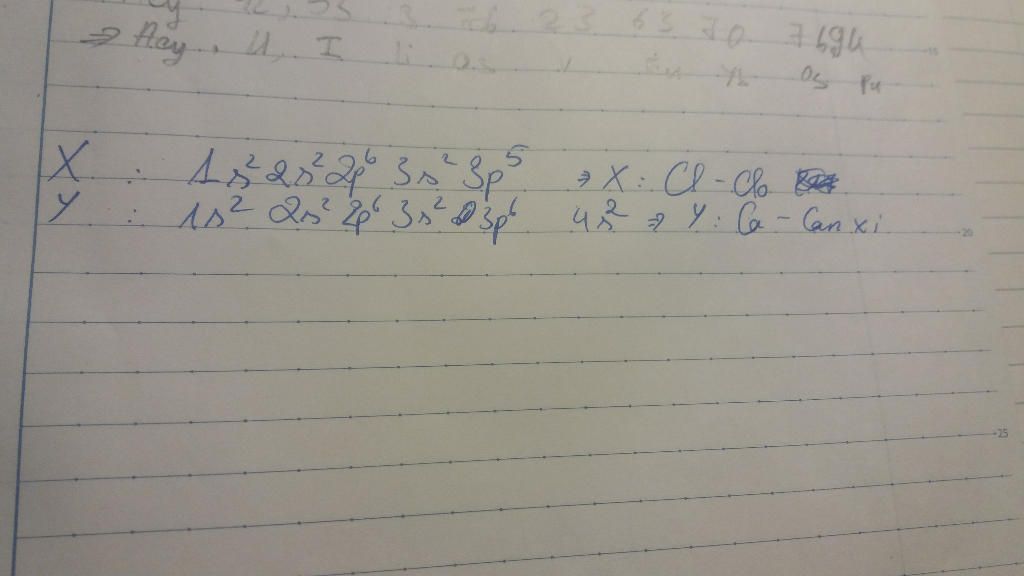 53 3 76 23 63 70 7694
⇒ Acy. U, I Li Os V Eu Yb Os Pu
X : 1s² 2s² 2p⁶ 3s² 3p⁵ ⇒ X : Cl - Clo
Y : 1s² 2s² 2p⁶ 3s² 3p⁶ 4s² ⇒ Y : Ca - Canxi
20
25